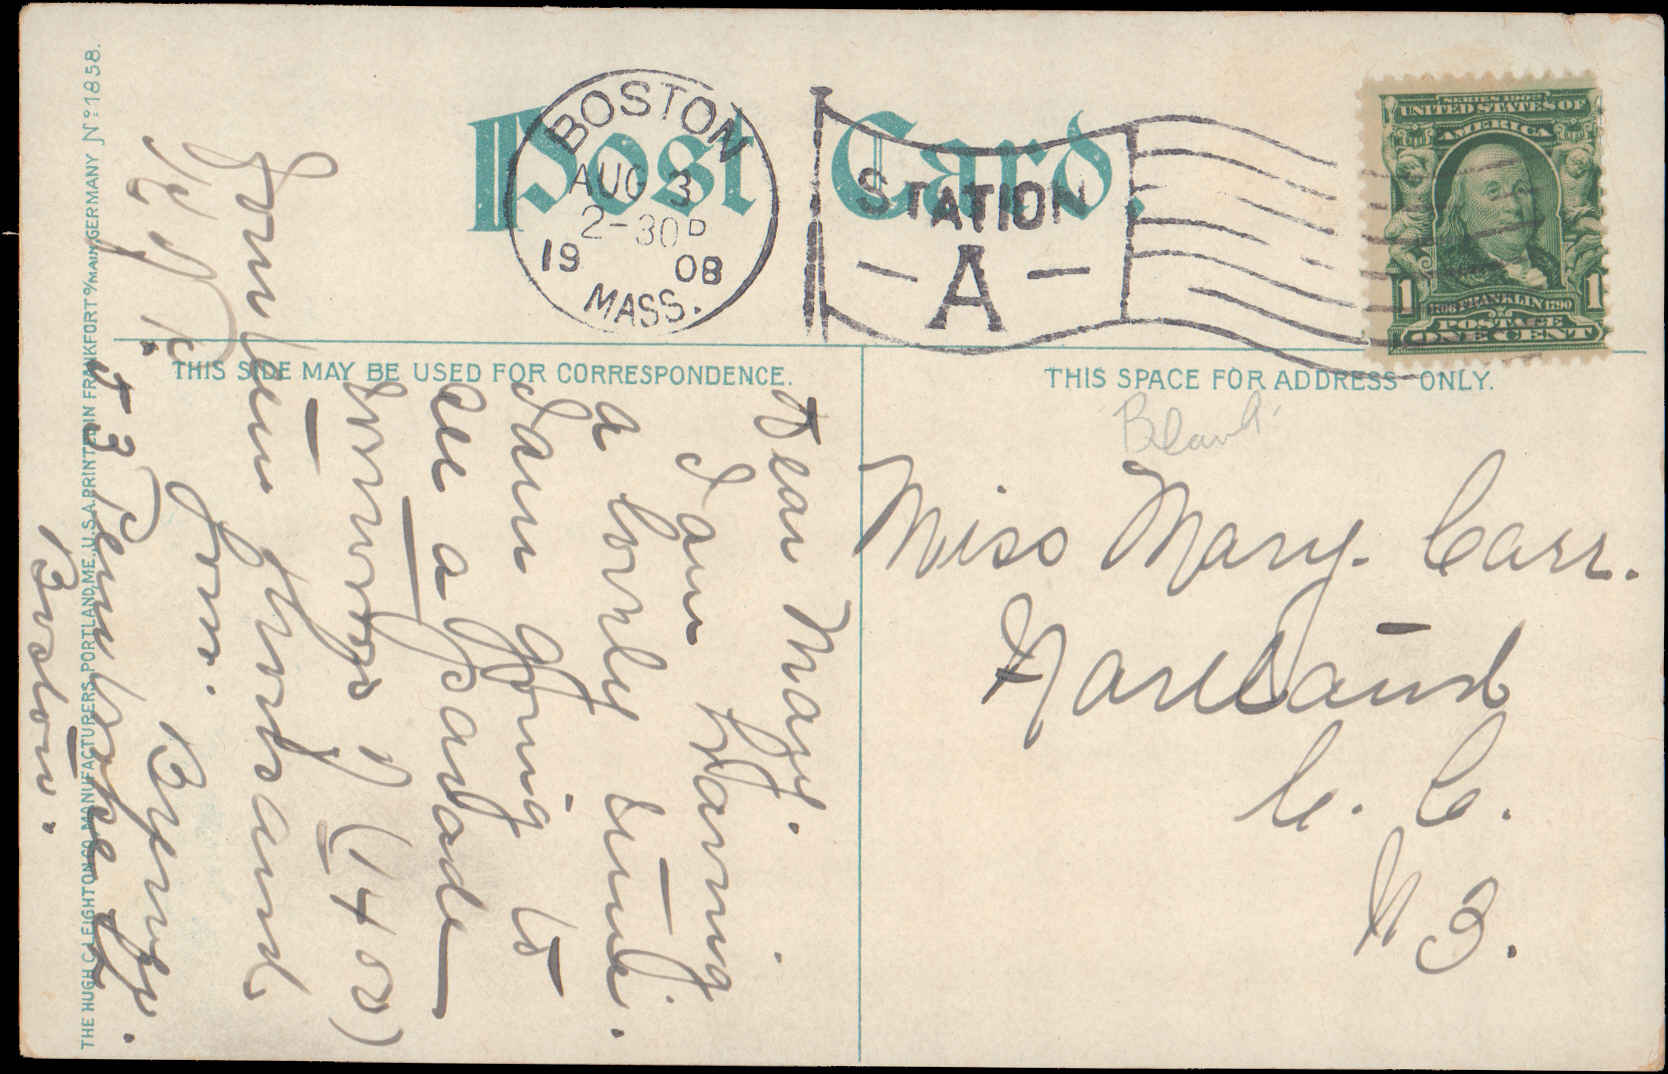 Post Card.
BOSTON
AUG 3
2-30P
1908
MASS.
STATION
A
SERIES 1902
UNITED STATES OF
AMERICA
1 1706 FRANKLIN 1790 1
POSTAGE
ONE CENT
THIS SIDE MAY BE USED FOR CORRESPONDENCE.
THIS SPACE FOR ADDRESS ONLY.
Blank
Miss Mary. Carr.
C. C.
N B.
Dear Mary.
I am having
a lovely time.
I am going to
see a parade
(1400)
Fourteen thousand
for.
3 Pembroke St
Boston.
THE HUGH C. LEIGHTON CO., MANUFACTURERS, PORTLAND, ME., U.S.A. PRINTED IN FRANKFORT o/MAIN, GERMANY Nº 1858.